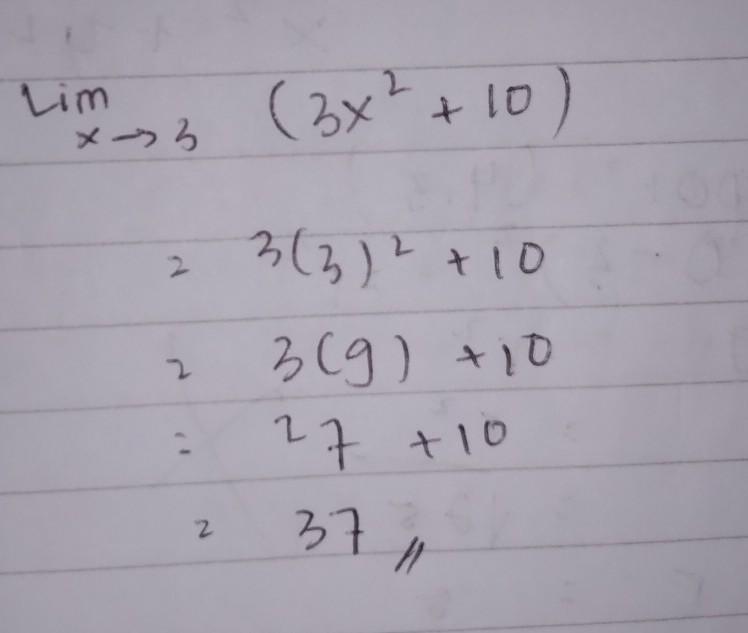 Lim (3x² + 10)
x→3
= 3(3)² + 10
= 3(9) + 10
= 27 + 10
= 37 //